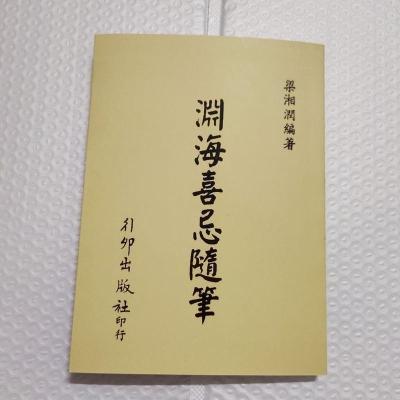 梁湘潤編著
淵海喜忌隨筆
行卯出版社印行